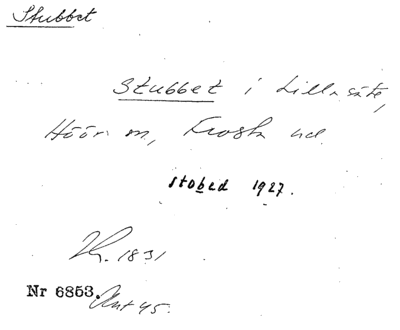 Stubbet
Stubbet i Lilla säte,
Höörs sn, Frosta hd
stobed 1927.
1831
Nr 6853. Ant 45.